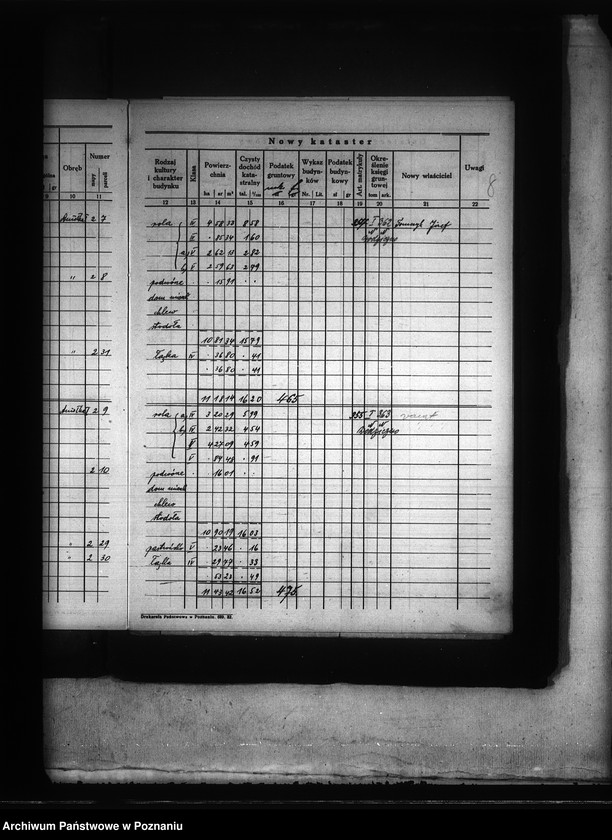 Nowy kataster
Obręb
Numer
mapy
parceli
Rodzaj kultury i charakter budynku
Klasa
Powierzchnia
ha ar m²
Czysty dochód katastralny
tal. 1/100
Podatek gruntowy
Wykaz budynków
Nr. Lit.
Podatek budynkowy
zł gr
Art. matrykuły
Określenie księgi gruntowej
tom ark.
Nowy właściciel
Uwagi
8
9 10 11 12 13 14 15 16 17 18 19 20 21 22
2 7 rola III 4 58 33 8 58 I 362 Józef
IV . 85 34 1 60
a) V 2 62 13 2 82
b) V 2 59 63 2 79
" 2 8 podwórze . 15 91 . .
dom mieszk
chlew
stodoła
10 81 34 15 79
" 2 31 łąka IV . 36 80 . 41
. 36 80 . 41
11 18 14 16 20 465
2 9 rola a) III 3 20 29 5 99 355 I 363
b) IV 2 42 32 4 54
V 4 27 09 4 59
V . 84 48 . 91
2 10 podwórze . 16 01 . .
dom mieszk
chlew
stodoła
10 90 19 16 03
" 2 29 pastwisko V . 23 46 . 16
" 2 30 łąka IV . 29 77 . 33
. 53 23 . 49
11 43 42 16 52 475
Drukarnia Państwowa w Poznaniu.
Archiwum Państwowe w Poznaniu